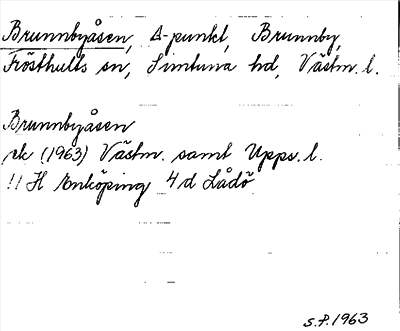 Brunnbyåsen, Δ-punkt, Brunnby,
Frösthults sn, Simtuna hd, Västm. l.
Brunnbyåsen
rk (1963) Västm. samt Upps. l.
11 H Enköping 4d Lådö
S.P. 1963